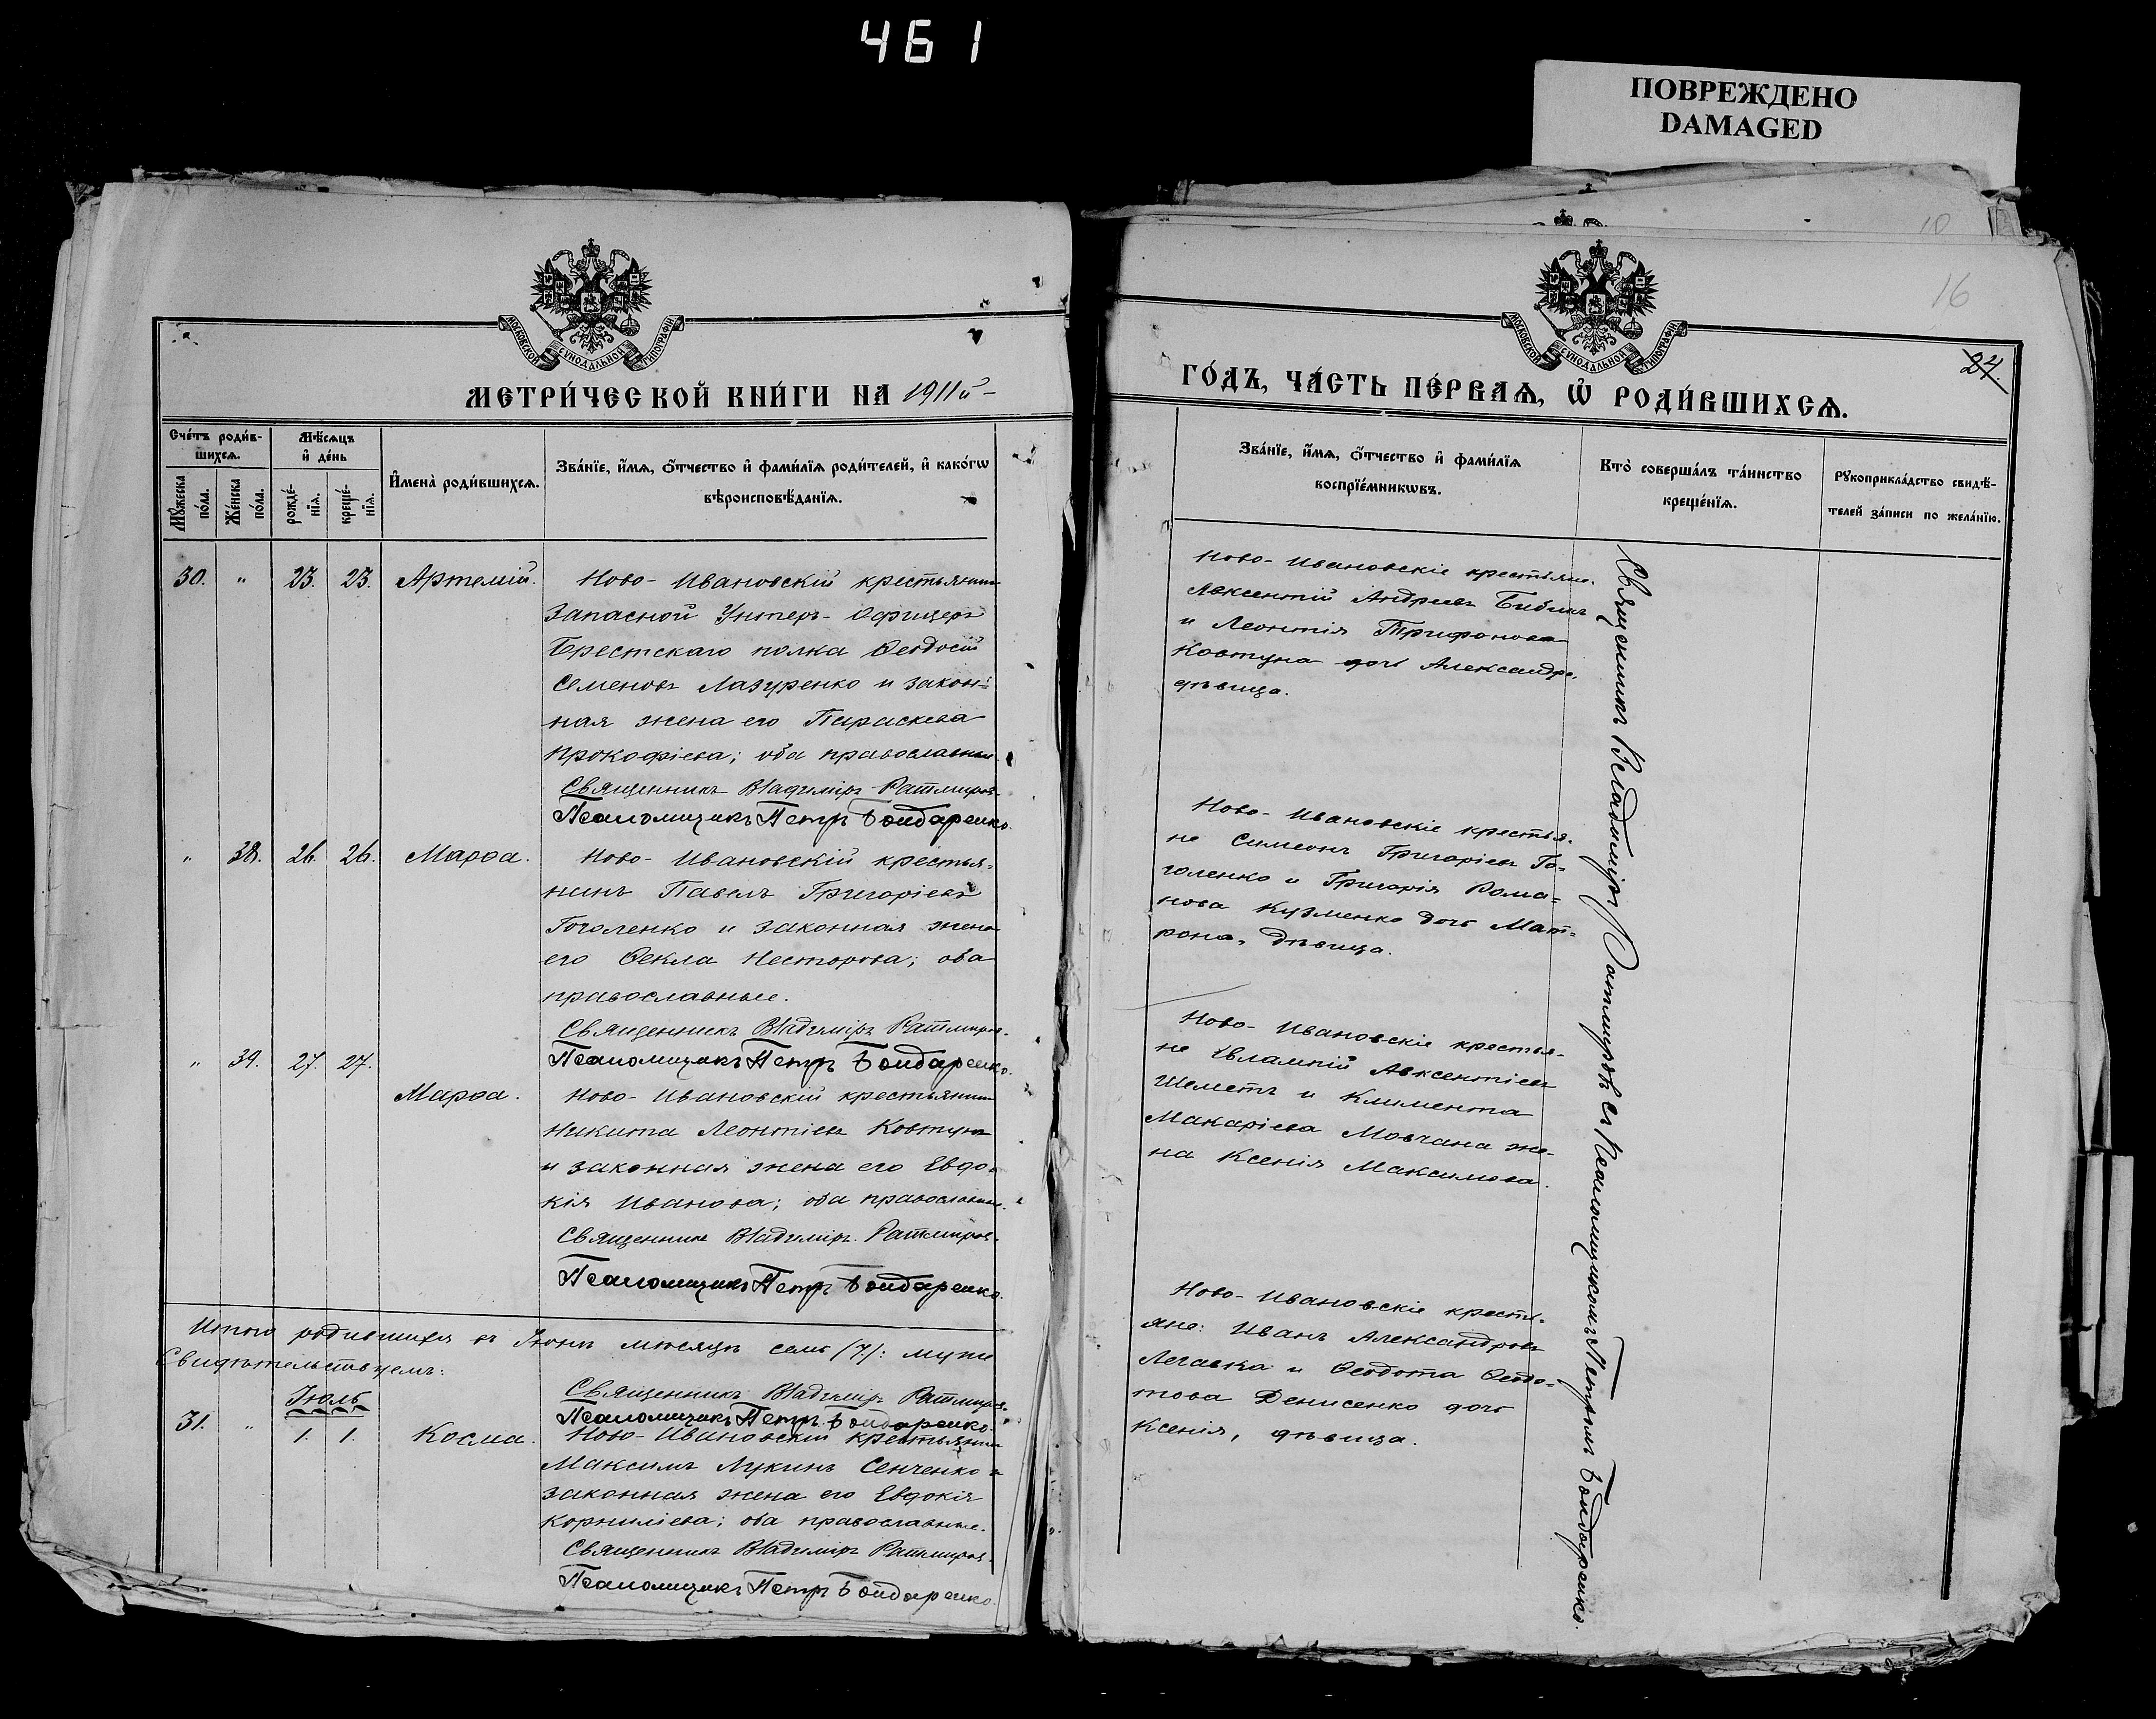 461
ПОВРЕЖДЕНО
DAMAGED
МОСКОВСКОЙ СУНОДАЛЬНОЙ ТИПОГРАФІИ
МЕТРИ́ЧЕСКОЙ КНИ́ГИ НА 1911й
Сче́тъ роди́в-
шихсѧ.
Мѣ́сѧцъ
и҆ де́нь
Мꙋ́жеска
по́ла.
Же́нска
по́ла.
рожде́-
нїѧ.
креще́-
нїѧ.
И҆мена̀ роди́вшихсѧ.
Зва́нїе, и҆́мѧ, ѻ҆́тчество и҆ фами́лїѧ роди́телей, и҆ како́гѡ
вѣроисповѣ́данїѧ.
30. " 23. 23. Артемій. Ново-Ивановскій крестьянинъ
Запасной Унтеръ-Офицеръ
Брестскаго полка Ѳеодосій
Семеновъ Лазуренко и закон-
ная жена его Параскева
Прокофіева; оба православные.
Священникъ Владиміръ Ратмировъ.
Псаломщикъ Петръ Бондаренко.
" 38. 26. 26. Марѳа. Ново-Ивановскій крестья-
нинъ Павелъ Григоріевъ
Гоголенко и законная жена
его Ѳекла Несторова; оба
православные.
Священникъ Владиміръ Ратмировъ.
Псаломщикъ Петръ Бондаренко.
" 39. 27. 27.
Марѳа. Ново-Ивановскій крестьянинъ
Никита Леонтіевъ Ковтунъ
и законная жена его Евдо-
кія Иванова; оба православные.
Священникъ Владиміръ Ратмировъ.
Псаломщикъ Петръ Бондаренко.
Итого родившихся въ Іюнѣ мѣсяцѣ семь (7.): муже
Свидѣтельствуемъ:
Священникъ Владиміръ Ратмировъ.
Псаломщикъ Петръ Бондаренко.
Іюль
31. " 1. 1. Косма. Ново-Ивановскій крестьянинъ
Максимъ Лукинъ Сенченко и
законная жена его Евдокія
Корниліева; оба православные.
Священникъ Владиміръ Ратмировъ.
Псаломщикъ Петръ Бондаренко.
16
24.
МОСКОВСКОЙ СУНОДАЛЬНОЙ ТИПОГРАФІИ
ГО́ДЪ, ЧА́СТЬ ПЕ́РВАѦ, Ѡ҆ РОДИ́ВШИХСѦ.
Зва́нїе, и҆́мѧ, ѻ҆́тчество и҆ фами́лїѧ
воспрїе́мникѡвъ.
Кто̀ соверша́лъ та́инство
креще́нїѧ.
Рꙋкоприкла́дство свидѣ́-
телей за́писи по жела́нїю.
Ново-Ивановскіе крестьяне.
Авксентій Андреевъ Бибикъ
и Леонтія Трифонова
Ковтуна дочь Александра,
дѣвица.
Ново-Ивановскіе крестья-
не Симеонъ Григоріевъ Го-
голенко и Григорія Рома-
нова Кузменко дочь Мат-
рона, дѣвица.
Ново-Ивановскіе крестья-
не Евлампій Авксентіевъ
Шеметъ и Климента
Макаріева Мовчана же-
на Ксенія Максимова.
Ново-Ивановскіе кресть-
яне: Иванъ Александровъ
Легавка и Ѳеодота Ѳеодо-
това Денисенко дочь
Ксенія, дѣвица.
Священникъ Владиміръ Ратмировъ съ Псаломщикомъ Петромъ Бондаренко.